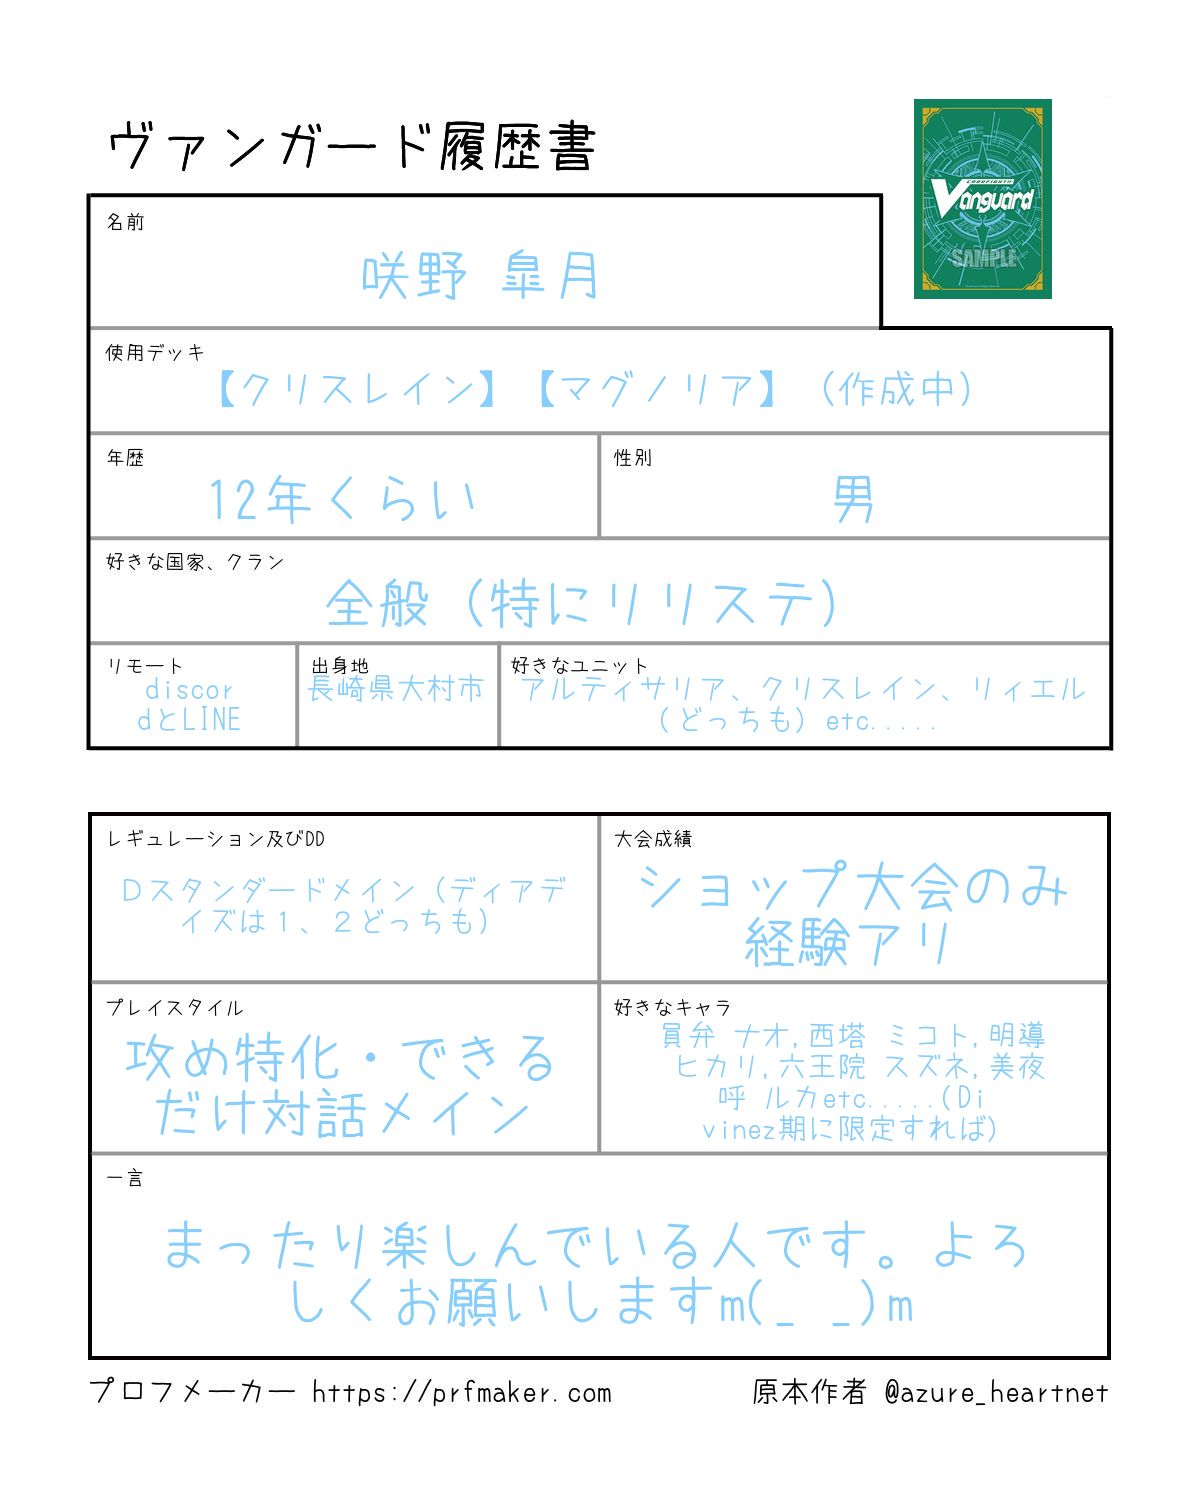 ヴァンガード履歴書
CARDFIGHT!!
Vanguard
SAMPLE
名前
咲野 皐月
使用デッキ
【クリスレイン】【マグノリア】（作成中）
年歴
12年くらい
性別
男
好きな国家、クラン
全般（特にリリステ）
リモート
discor
dとLINE
出身地
長崎県大村市
好きなユニット
アルティサリア、クリスレイン、リィエル
（どっちも）etc.....
レギュレーション及びDD
Ｄスタンダードメイン（ディアデ
イズは１、２どっちも）
大会成績
ショップ大会のみ
経験アリ
プレイスタイル
攻め特化・できる
だけ対話メイン
好きなキャラ
員弁 ナオ,西塔 ミコト,明導
ヒカリ,六王院 スズネ,美夜
呼 ルカetc.....(Di
vinez期に限定すれば)
一言
まったり楽しんでいる人です。よろ
しくお願いしますm(_ _)m
プロフメーカー https://prfmaker.com
原本作者 @azure_heartnet